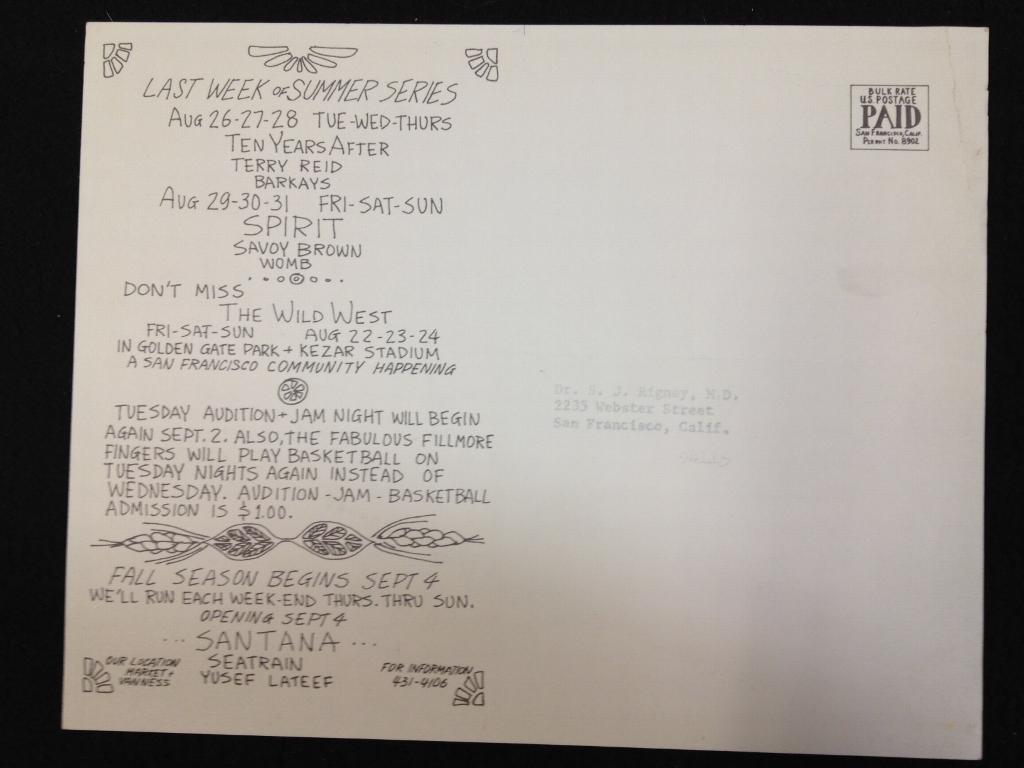 LAST WEEK OF SUMMER SERIES
AUG 26-27-28 TUE-WED-THURS
TEN YEARS AFTER
TERRY REID
BARKAYS
AUG 29-30-31 FRI-SAT-SUN
SPIRIT
SAVOY BROWN
WOMB
DON'T MISS
THE WILD WEST
FRI-SAT-SUN AUG 22-23-24
IN GOLDEN GATE PARK + KEZAR STADIUM
A SAN FRANCISCO COMMUNITY HAPPENING
TUESDAY AUDITION + JAM NIGHT WILL BEGIN
AGAIN SEPT. 2. ALSO, THE FABULOUS FILLMORE
FINGERS WILL PLAY BASKETBALL ON
TUESDAY NIGHTS AGAIN INSTEAD OF
WEDNESDAY. AUDITION - JAM - BASKETBALL
ADMISSION IS $1.00.
FALL SEASON BEGINS SEPT 4
WE'LL RUN EACH WEEK-END THURS. THRU SUN.
OPENING SEPT 4
... SANTANA ...
SEATRAIN
YUSEF LATEEF
OUR LOCATION
MARKET +
VAN NESS
FOR INFORMATION
431-4106
BULK RATE
U.S. POSTAGE
PAID
SAN FRANCISCO, CALIF.
PERMIT NO. 8902
Dr. S. J. Rigney, M.D.
2235 Webster Street
San Francisco, Calif.